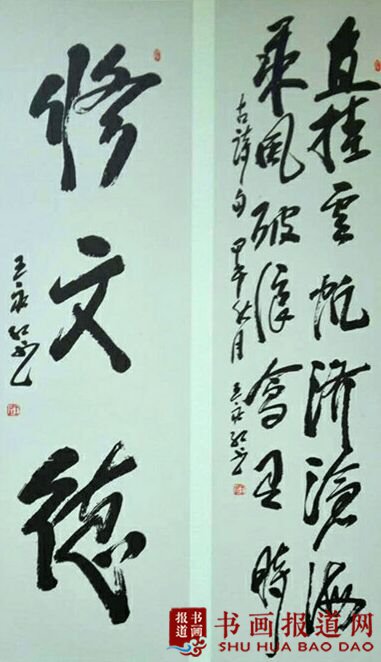 直挂云帆济滄海
乘風破浪會有時
古詩句 甲午秋月 王永红书
修文德
王永红书
书画报道
书画报道网
SHU HUA BAO DAO